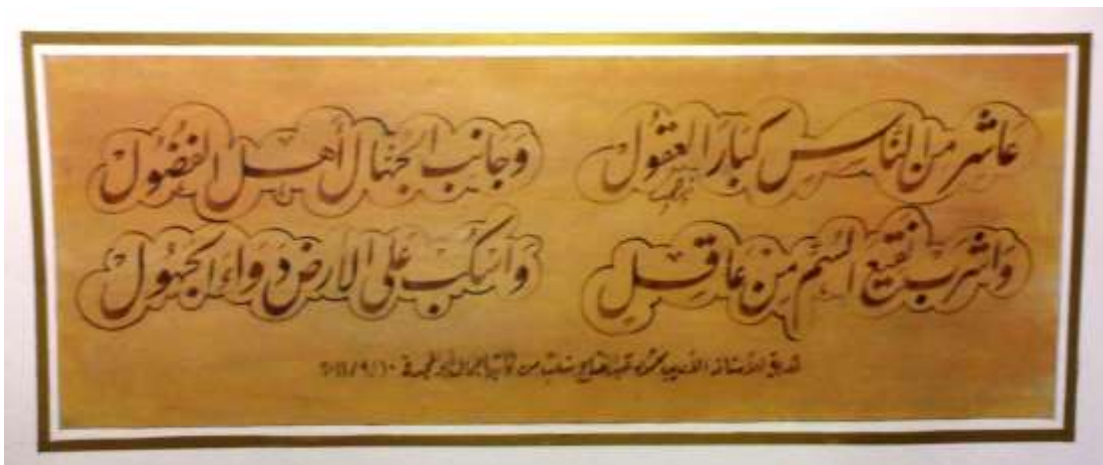 عَاشِر مِنَ النَّاسِ كِبَارَ العُقُولْ وَجَانِبِ الجُهَّالَ أَهْلَ الفُضُولْ
وَاشْرَبْ نَقِيعَ السُّمِّ مِنْ عَاقِلٍ وَاسْكُبْ عَلَى الأَرْضِ دَوَاءَ الجَهُولْ
للأستاذ الأديب من